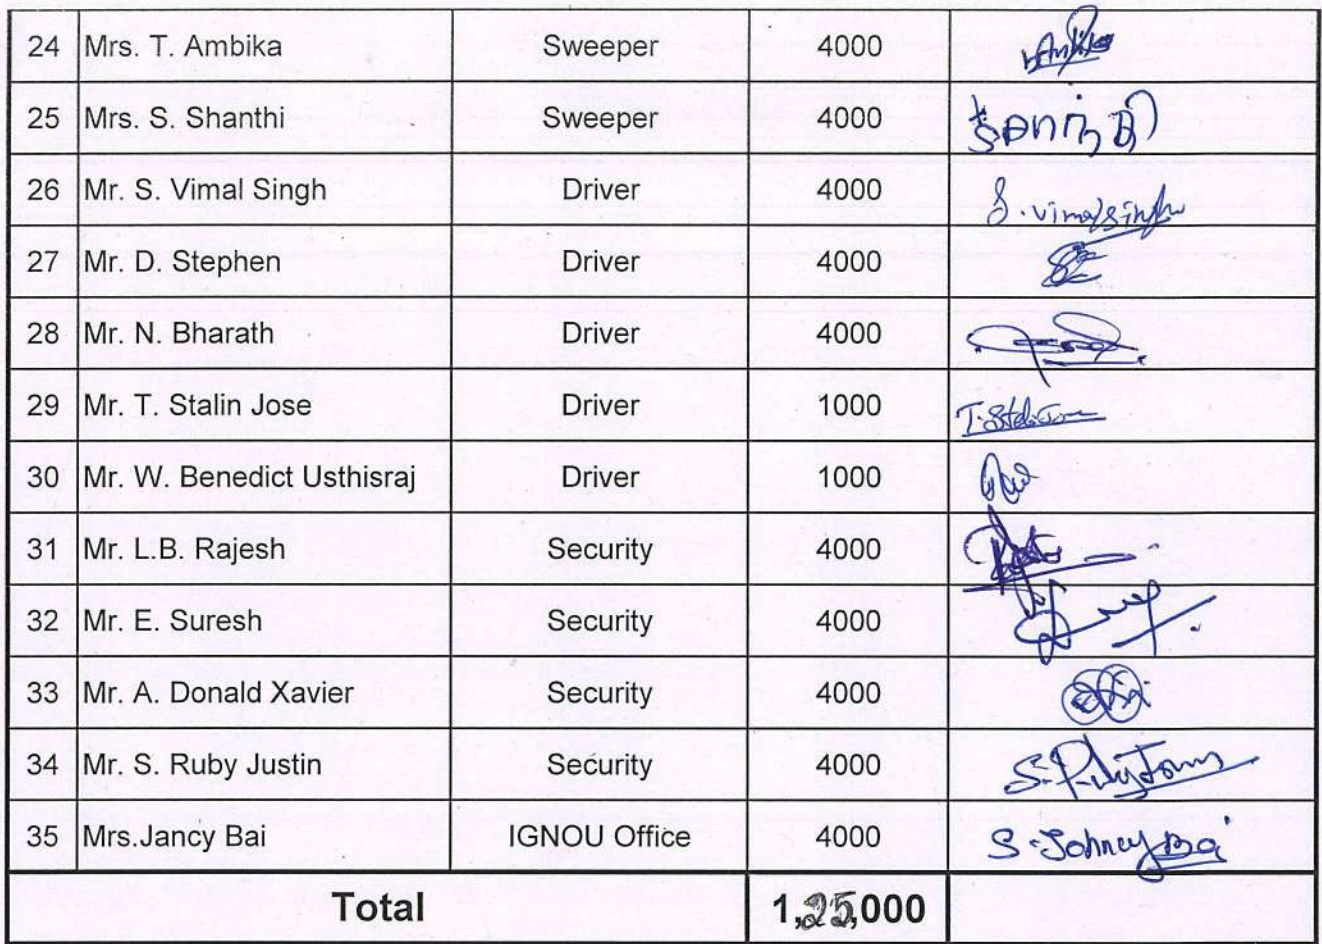 24 Mrs. T. Ambika Sweeper 4000 Ambika
25 Mrs. S. Shanthi Sweeper 4000
26 Mr. S. Vimal Singh Driver 4000 S. Vimal singh
27 Mr. D. Stephen Driver 4000
28 Mr. N. Bharath Driver 4000
29 Mr. T. Stalin Jose Driver 1000
30 Mr. W. Benedict Usthisraj Driver 1000
31 Mr. L.B. Rajesh Security 4000
32 Mr. E. Suresh Security 4000
33 Mr. A. Donald Xavier Security 4000
34 Mr. S. Ruby Justin Security 4000
35 Mrs.Jancy Bai IGNOU Office 4000 S. Johncy Bai
Total 1,25,000